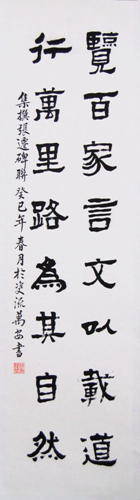 覽百家言文以載道
行萬里路為其自然
集撰張遷碑聯癸巳年春月於婆流萬安書